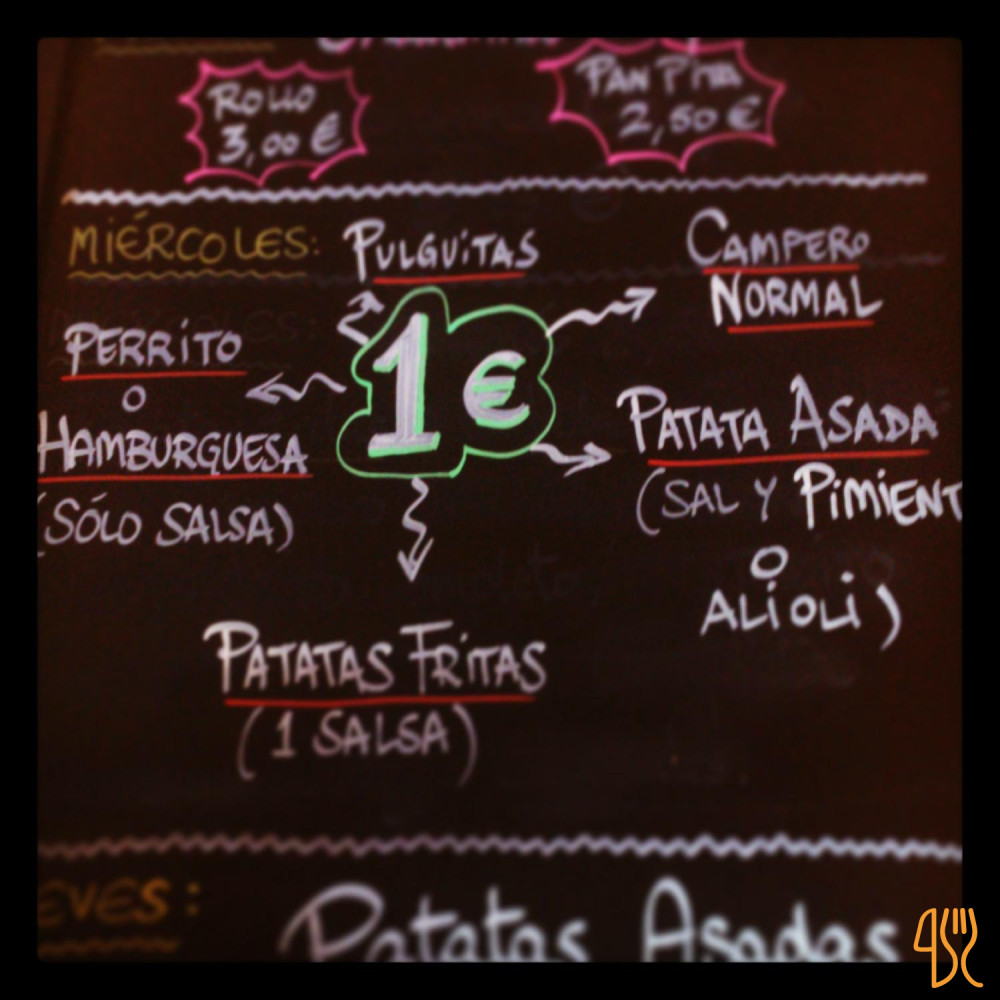 ROLLO
3,00 €
PAN PITA
2,50 €
MIÉRCOLES:
PULGUITAS
CAMPERO
NORMAL
1 €
PERRITO
O
HAMBURGUESA
(SÓLO SALSA)
PATATA ASADA
(SAL Y PIMIENT
O
ALIOLI)
PATATAS FRITAS
(1 SALSA)
EVES:
Patatas Asadas